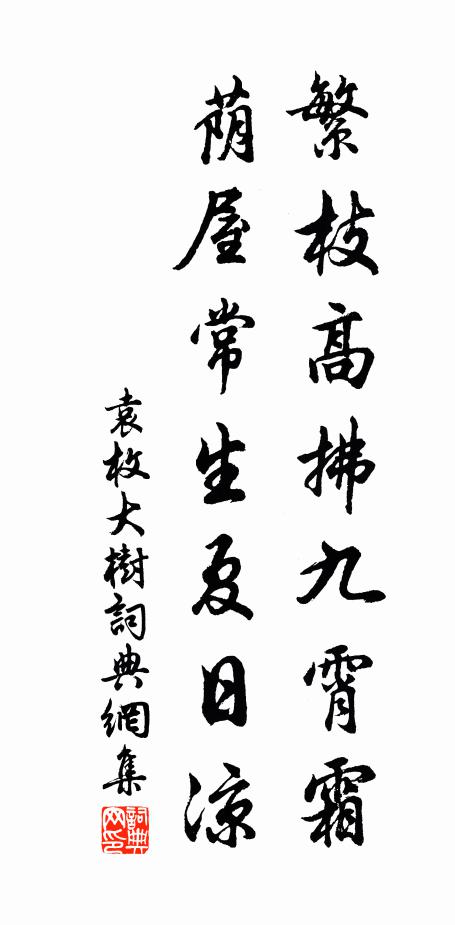 繁枝高拂九霄霜
荫屋常生夏日凉
袁枚大樹詞典網集
詞典网印